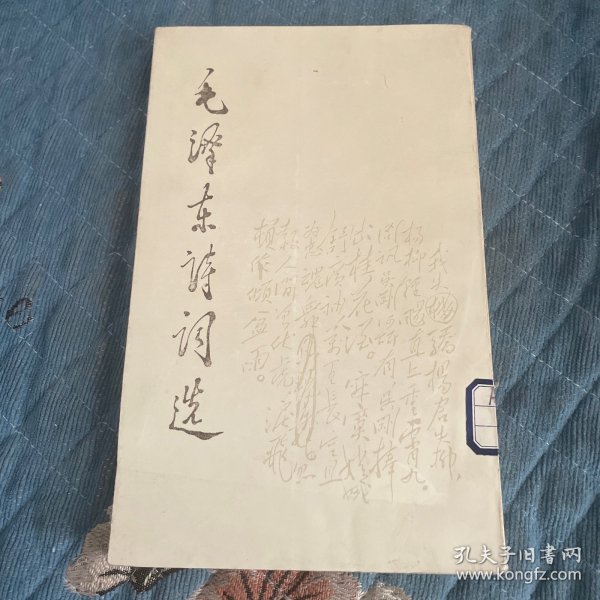 毛泽东詩词选
我失驕楊君失柳、
楊柳輕颺直上重霄九。
问讯吴刚何所有，吴刚捧
出桂花酒。寂寞嫦娥
舒广袖，万里长空且
报人间曾伏虎，泪飛
顿作倾盆雨。
孔夫子旧书网
www.kongfz.com